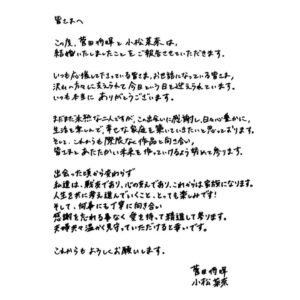 皆さまへ
この度、菅田将暉と小松菜奈は、
結婚いたしましたことをご報告させていただきます。
いつも応援して下さっている皆さま、お世話になっている皆さま、
沢山の方々に支えられて今日という日を迎えられています。
いつも本当にありがとうございます。
まだまだ未熟な二人ですが、この出会いに感謝し、日々心豊かに、
生活を楽しんで、幸せな家庭を築いていきたいと思っております。
そして、これからも際限なく作品と向き合い、
皆さまとあたたかい未来を作っていけるよう努めて参ります。
出会った頃から変わらず
私達は、戦友であり、心の友であり、これからは家族になります。
人生を共に考え進んでいくこと、とっても楽しみです!
そして、何事にも丁寧に向き合い
感謝を忘れる事なく愛を持って精進して参ります。
夫婦共々温かく見守っていただけると幸いです。
これからもよろしくお願いします。
菅田将暉
小松菜奈